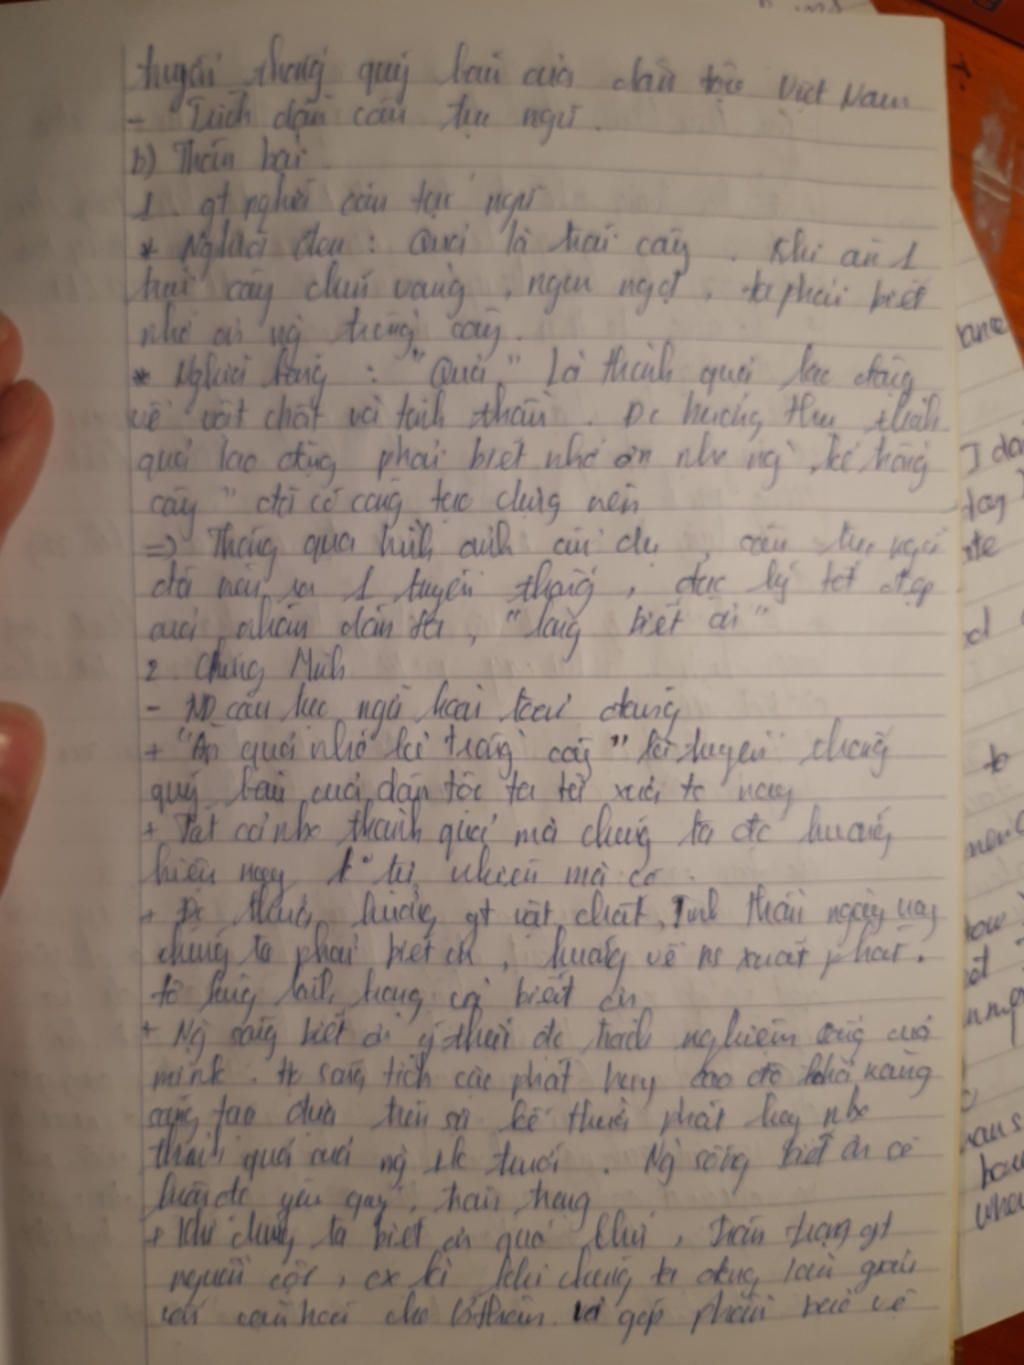 truyền thống quý báu của dân tộc Việt Nam
- Trích dẫn câu tục ngữ.
b) Thân bài
1. gt nghĩa câu tục ngữ
* Nghĩa đen: Quả là trái cây. Khi ăn 1
trái cây chín vàng, ngon ngọt, ta phải biết
nhớ ơn ng trồng cây.
* Nghĩa bóng: "Quả" là thành quả lao động
về vật chất và tinh thần. Đc hưởng thụ thành
quả lao động phải biết nhớ ơn ng "kẻ trồng
cây" đã có công tạo dựng nên
=> Thông qua hình ảnh ẩn dụ, câu tục ngữ
đã nêu ra 1 truyền thống, đạo lý tốt đẹp
của nhân dân ta, "lòng biết ơn"
2. Chứng Minh
- ND câu tục ngữ hoàn toàn đúng
+ "Ăn quả nhớ kẻ trồng cây" là truyền thống
quý báu của dân tộc ta từ xưa tới nay
+ Tất cả thành quả mà chúng ta đc hưởng
hiện nay tự nhiên mà có
+ Đc thừa hưởng gt vật chất, tinh thần ngày nay
chúng ta phải biết ơn, hướng về xuất phát.
tỏ lòng thành, trọng và biết ơn
+ Ng sống biết ơn ý thức đc trách nghiệm của
mình. sống tích cực phát huy khả năng
sáng tạo dựa trên sự kế thừa phát huy
thành quả của ng đi trước. Ng sống biết ơn
luôn đc yêu quý, trân trọng
+ Khi chúng ta biết ơn quá khứ, trân trọng gt
nguồn cội, khi chúng ta đang làm giàu
văn hoá cho bản thân và góp phần bảo vệ
I
to
how